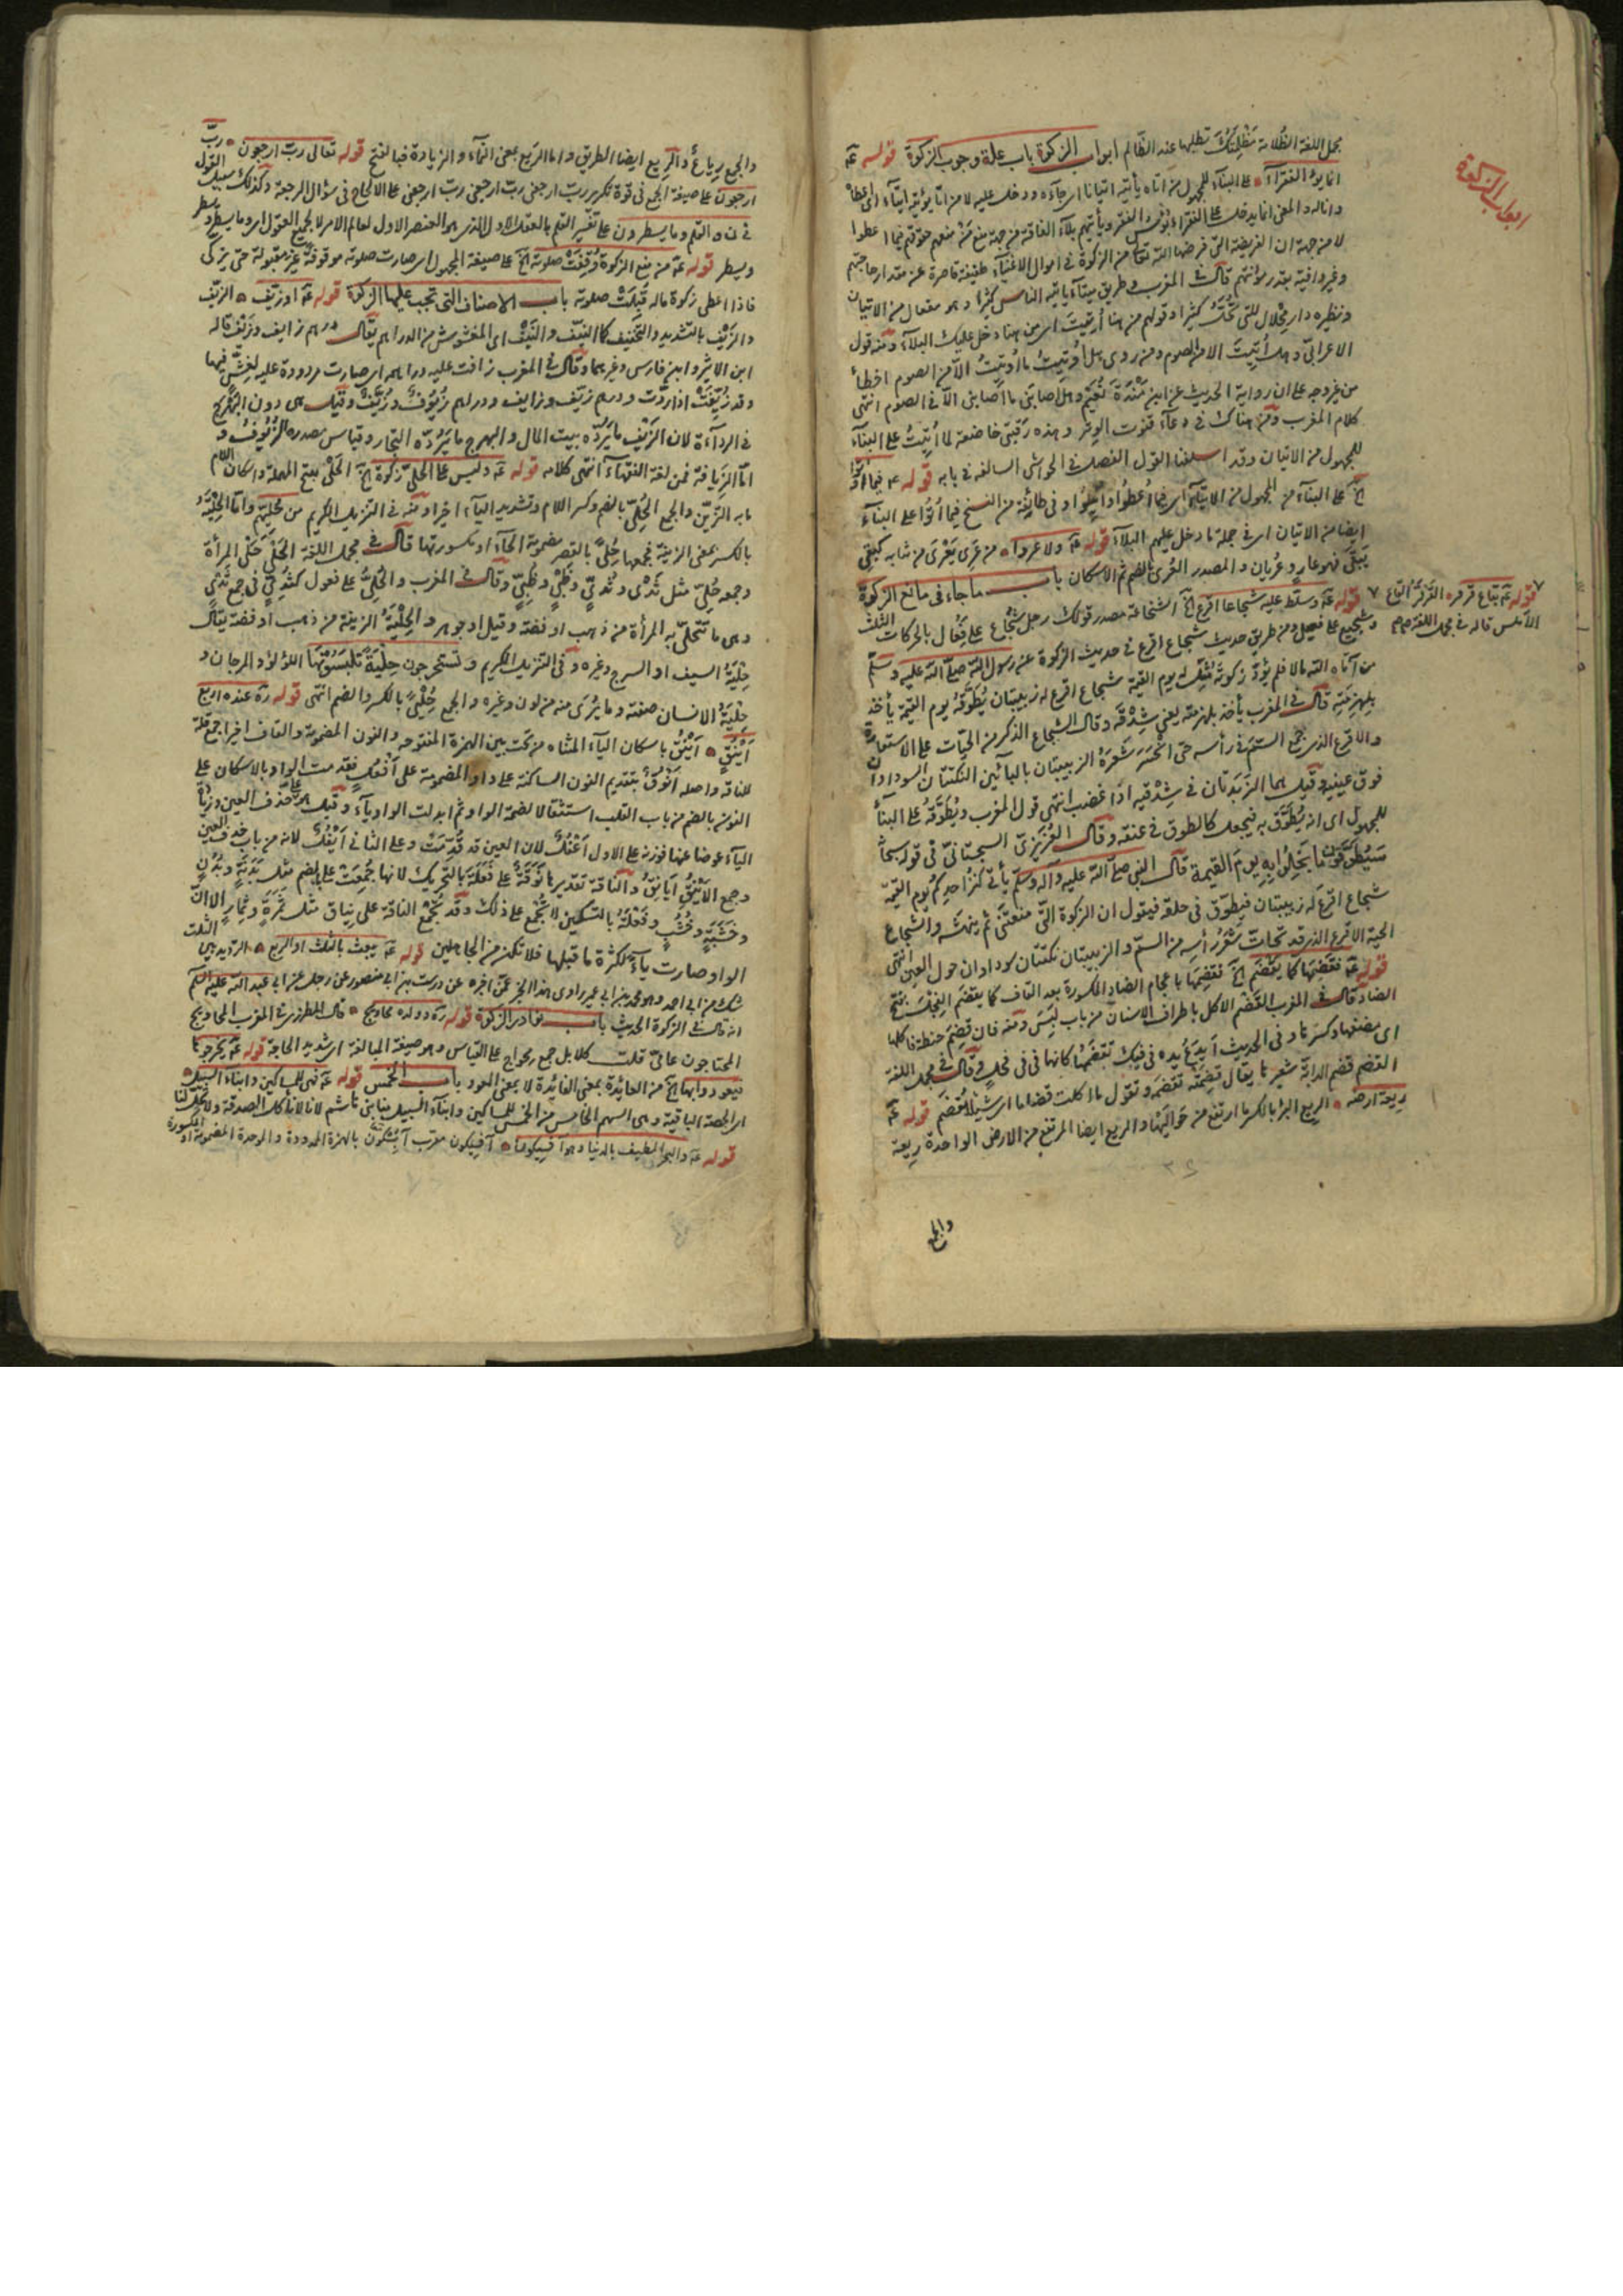 مجمل اللغة الظلامة مظلمتك تطلبها عند الظالم ابواب الزكوة باب علة وجوب الزكوة قوله عه
ابواب الزكوة
انما يؤتى الفقراء على البناء للمجهول من اتاه يأتيه اتيانا اى جاءه ودخل عليه لا من اتا يؤتيه ايتاء اى اعطاه
واناله والمعنى انما يدخل على الفقراء بؤس الفقر ويأتيهم بلاء الفاقة من جهة منع من منعهم حقوقهم فيما اعطوا
لا من جهة ان الفريضة التى فرضها الله تعالى من الزكوة فى اموال الاغنياء طفيفة قاصرة عن مقدار حاجتهم
وغير وافية بقدر مؤنتهم قال فى المغرب وطريق ميتاء يأتيه الناس كثيرا وهو مفعال من الاتيان
ونظيره دار محلال للتى تحل كثيرا وقولهم من هنا أتيت اى من هنا دخل عليك البلاء ومنه قول
الاعرابى وهل أتيت الا من الصوم ومن روى وهل أوتيت ما أوتيت الا من الصوم اخطأ
من غير وجه على ان رواية الحديث عن ابن مندة وابى نعيم وهل اصابنى ما اصابنى الا فى الصوم انتهى
كلام المغرب ومن هناك فى دعاء قنوت الوتر وهذه رقبتى خاضعة لما أتيت على البناء
للمجهول من الاتيان وقد اسلفنا القول الفصل فى الحواشى السالفة فى بابه قوله ع فيما أوتوا
الخ على البناء من المجهول من الايتاء اى فيما أعطوا وانيلوا وفى طائفة من النسخ فيما أتوا على البناء
ايضا من الاتيان اى فى جملة ما دخل عليهم البلاء قوله عه ولا عروا من عرى يعرى من شابه كبقى
يبقى فهو عار وعريان والمصدر العرى بالضم ثم الاسكان باب ما جاء فى مانع الزكوة
قوله عه بقاع قرقر القرقر القاع
الاملس قاله فى مجمل اللغة
قوله عه وسلط عليه شجاعا اقرع الخ الشجاعة مصدر قولك رجل شجاع على فعال بالحركات الثلث
وشجيع على فعيل ومن طريق حديث شجاع اقرع فى حديث الزكوة عن رسول الله صلى الله عليه وسلم
من آتاه الله مالا فلم يؤد زكوته مثل له يوم القيمة شجاع اقرع له زبيبتان يطوقه يوم القيمة يأخذ
بلهزمته قال فى المغرب يأخذ بلهزمته يعنى شدقه وقال الشجاع الذكر من الحيات على الاستعارة
والاقرع الذى جمع السم فى رأسه حتى انحسر شعره الزبيبتان بالبائين النكتتان السوداوان
فوق عينيه وقيل هما الزبدتان فى شدقيه اذا غضب انتهى قول المغرب ويطوقه على البناء
للمجهول اى انه يطوق به فيجعل كالطوق فى عنقه وقال العزيزى السجستانى فى قوله سبحانه
سيطوقون ما بخلوا به يوم القيمة قال النبى صلى الله عليه وآله وسلم يأتى كنز احدكم يوم القيمة
شجاع اقرع له زبيبتان فيطوق فى حلقه فيقول ان الزكوة التى منعتنى ثم ينهشه والشجاع
الحية الاقرع الذى قد تحات شعر رأسه من السم والزبيبتان نكتتان سوداوان حول العين انتهى
قوله عه تقضمها كما يقضم الخ تقضمها باعجام الضاد المكسورة بعد القاف كما يقضم الفجل بفتح
الضاد قال فى المغرب القضم الاكل باطراف الاسنان من باب لبس ومنه فان قضم حنطة فاكلها
اى مضغها وكسرها وفى الحديث أيدع يده فى فيك تقضمها كانها فى فى فحل وقال فى مجمل اللغة
القضم قضم الدابة شعيرها يقال قضمته تقضمه وتقول ما اكلت قضاما اى شيئا يقضم قوله عه
ريعة ارضه الريع البر بالكسر ما ارتفع من حواليها والريع ايضا المرتفع من الارض الواحدة ريعة
والجمع
والجمع رياع والريع ايضا الطريق واما الريع بمعنى النماء والزيادة فبالفتح قوله تعالى رب ارجعون رب
ارجعون على صيغة الجمع فى قوة تكرير رب ارجعنى رب ارجعنى رب ارجعنى على الالحاح فى سؤال الرجعة وكذلك سبيل القول
فى ن والقلم وما يسطرون على تفسير القلم بالعقل الاول الذى هو العنصر الاول لعالم الامر لا لجميع العقول اى وما يسطر ويسطر
ويسطر قوله عه من منع الزكوة وقفت صلوته الخ على صيغة المجهول اى صارت صلوته موقوفة غير مقبولة حتى يزكى
فاذا اعطى زكوة ماله قبلت صلوته باب الاصناف التى تجب عليها الزكوة قوله عه او زيف الزيف
والزيف بالتشديد والتخفيف كالنيف والنيف اى المغشوش من الدراهم يقال درهم زايف وزيف قاله
ابن الاثير وابن فارس وغيرهما وقال فى المغرب زافت عليه دراهمه اى صارت مردودة عليه لغش فيها
وقد زيفت اذا ردت ودرهم زيف وزايف ودراهم زيوف وزيف وقيل هى دون البهرج
فى الرداءة لان الزيف ما يرده بيت المال والبهرج ما يرده التجار وقياس مصدره الزيوف و
اما الزيافة فمن لغة الفقهاء انتهى كلامه قوله عه وليس على الحلى زكوة الخ الحلى بفتح المهملة واسكان اللام
ما به التزين والجمع الحلى بالضم وكسر اللام وتشديد الياء اخيرا ومنه فى التنزيل الكريم من حليهم واما الحلية
بالكسر بمعنى الزينة فجمعها حلى بالقصر مضمومة الحاء او مكسورتها قال فى مجمل اللغة الحلى حلى المرأة
وجمعه حلى مثل ثدى وثدى وظبى وظبى وقال فى المغرب والحلى على فعول كثدى فى جمع ثدى
وهى ما تتحلى به المرأة من ذهب او فضة وقيل او جوهر والحلية الزينة من ذهب او فضة يقال
حلية السيف او السرج وغيره وفى التنزيل الكريم وتستخرجون حلية تلبسونها اللؤلؤ والمرجان و
حلية الانسان صفته وما يرى منه من لون وغيره والجمع حلى بالكسر والضم انتهى قوله ره عنده اربع
أينق أينق باسكان الياء المثناة من تحت بين الهمزة المفتوحة والنون المضمومة والقاف اخيرا جمع قلة
للناقة واصله أنوق بتقديم النون الساكنة على واو المضمومة على أفعل فقدمت الواو بالاسكان على
النون بالضم من باب القلب استثقالا لضمة الواو ثم ابدلت الواو ياء وقيل بل على حذف العين وزيادة
الياء عوضا عنها فوزنه على الاول أعفل لان العين قد قدمت وعلى الثانى أيفل لانه من باب حذف العين
وجمع الاينق أيانق والناقة تقديرها نوقة على فعلة بالتحريك لانها جمعت على بالضم مثل بدنة وبدن
وخشبة وخشب وفعلة بالتسكين لا تجمع على ذلك وقد تجمع الناقة على نياق مثل ثمرة وثمار الا ان
الواو صارت ياء لكثرة ما قبلها فلا تكن من الجاهلين قوله عه يبعث بالثلث او الربع الترديد بين الثلث
شك من ابى احمد وهو محمد بن ابى عمير راوى هذا الخبر عمن اخبره عن درست بن ابى منصور عن رجل عن ابى عبد الله عليه السلم
انه قال فى الزكوة الحديث باب نوادر الزكوة قوله ره وولده محاويج قال المطرزى فى المغرب المحاويج
المحتاجون عامى قلت كلا بل جمع محواج على القياس وهو صيغة المبالغة اى شديد الحاجة قوله عه يخرجونها
فيعود وابها الخ من العائدة بمعنى الفائدة لا بمعنى العود باب الخمس قوله عه فهى للمساكين وابناء السبيل
اى الحصة الباقية وهى السهم الخامس من الخمس للمساكين وابناء السبيل منا بنى هاشم لانا لا نأكل الصدقة ولا تحل لنا
قوله عه والبحر المطيف بالدنيا وهو آفسيكون آفسيكون معرب آبسكون بالهمزة الممدودة والموحدة المضمومة او المكسورة